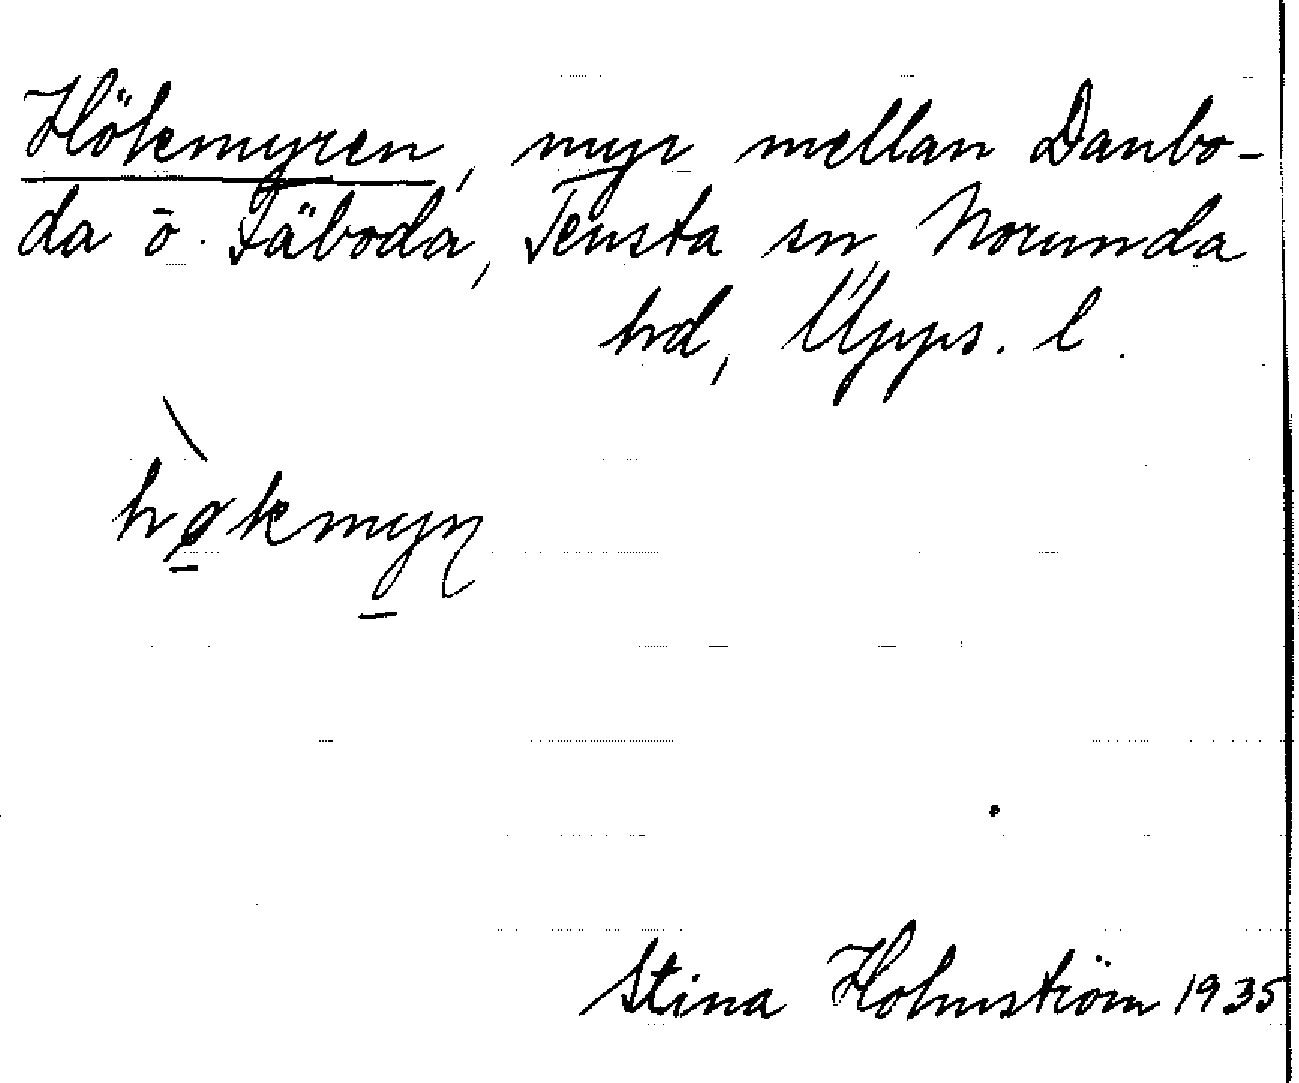 Hökmyren, myr mellan Danbo-
da o. Fäboda, Tensta sn, Norunda
hd, Upps. l.
høkmyɳ
Stina Holmström 1935